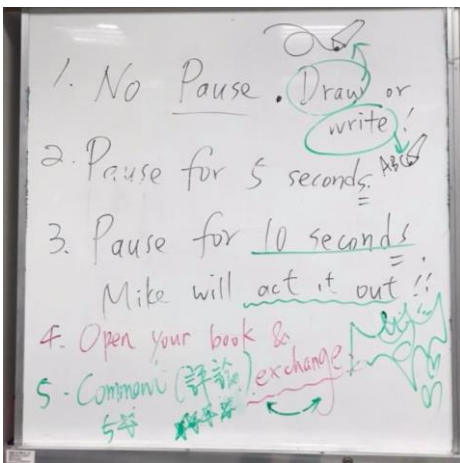 1. No Pause. Draw or
write!
ABC
2. Pause for 5 seconds.
3. Pause for 10 seconds.
Mike will act it out!!
4. Open your book &
exchange
5. Comment (評論)
5字